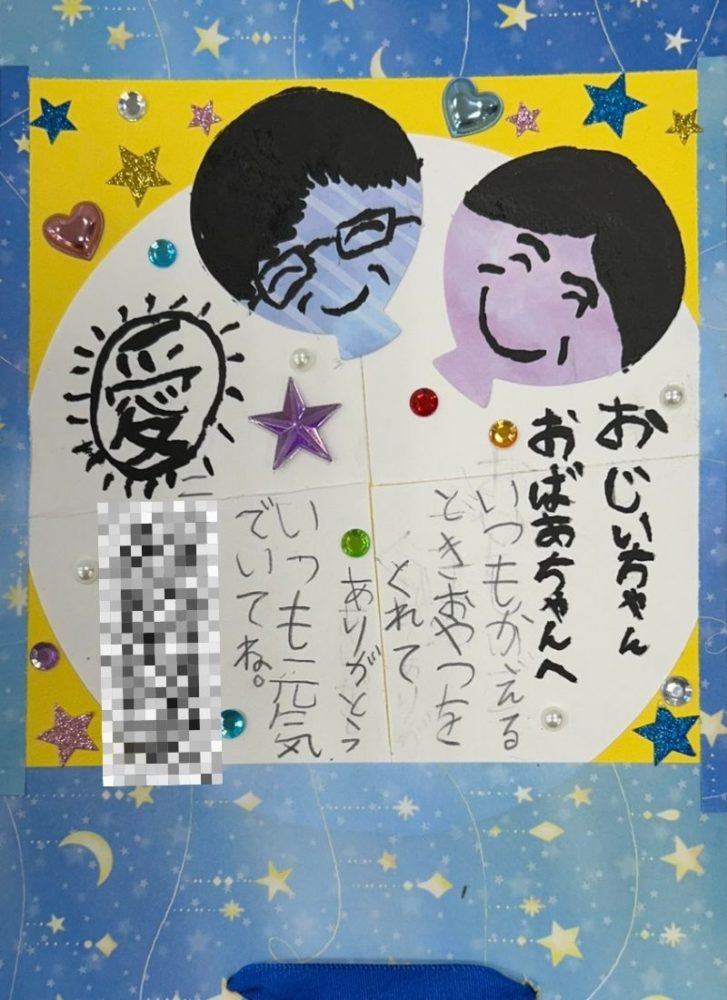 おじいちゃん
おばあちゃんへ
いつもかえる
ときおやつを
くれて
ありがとう
いつも元気
でいてね。
愛